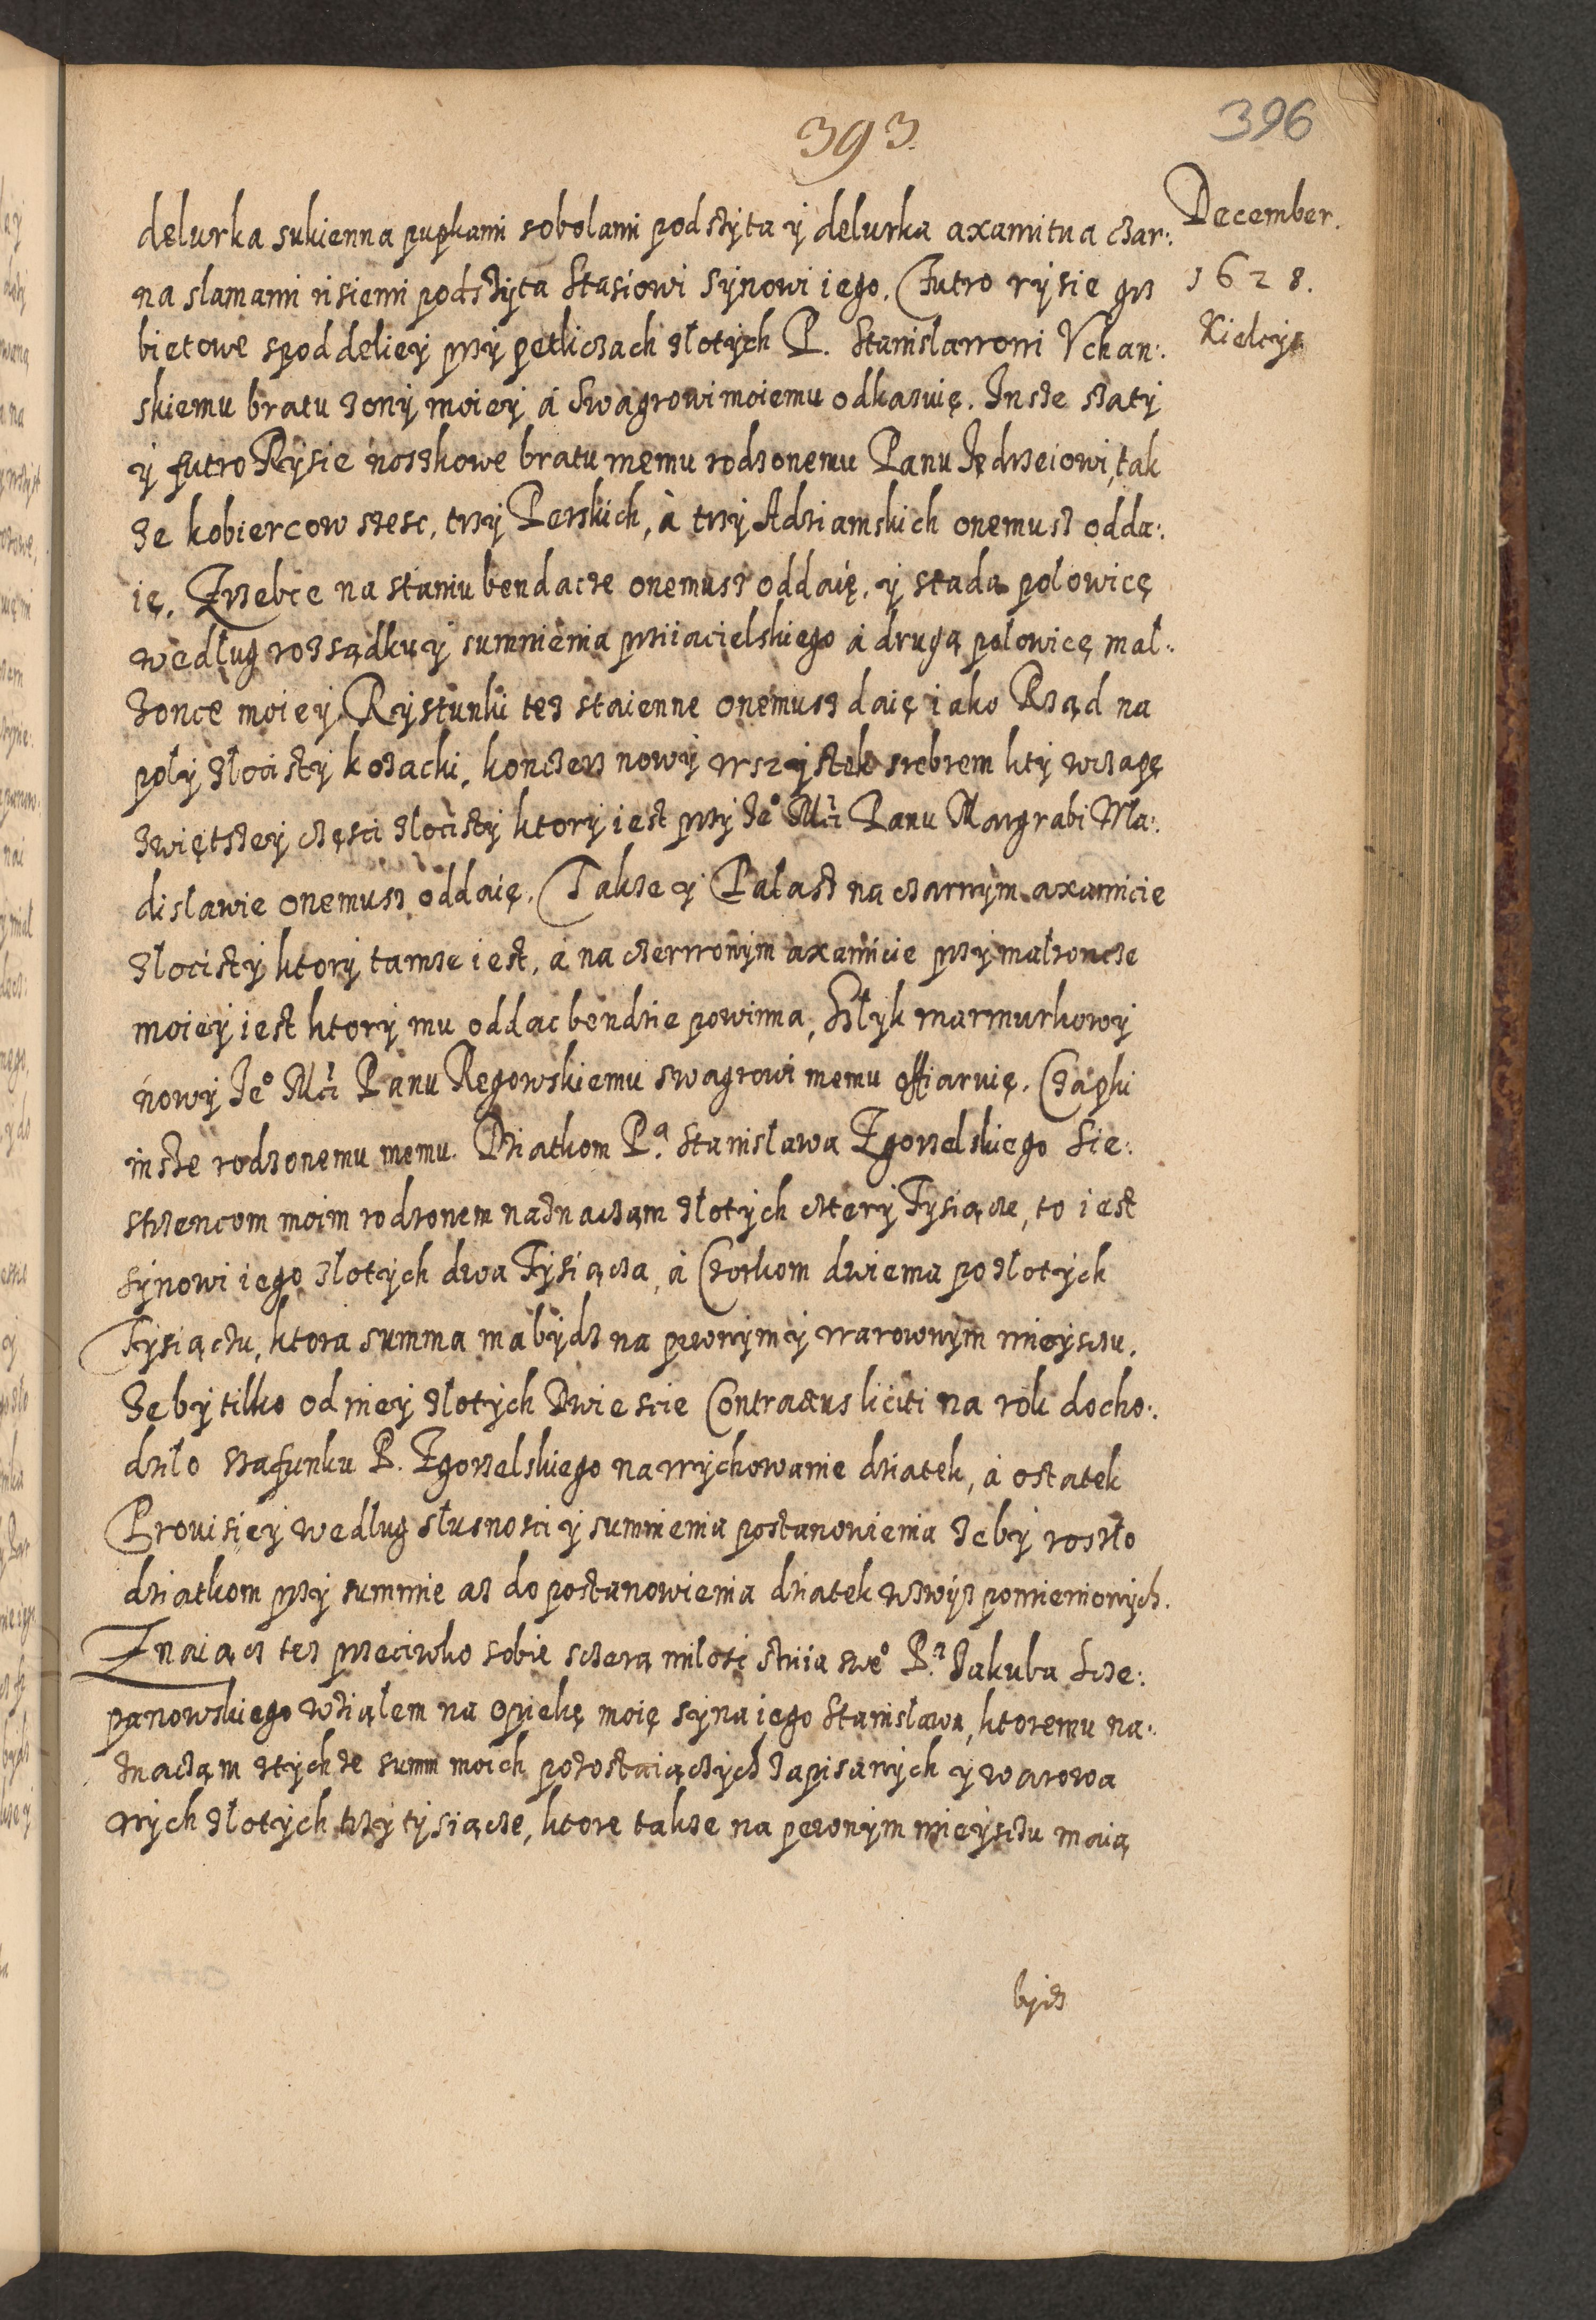 393.
396
December.
1628.
Kielcys
delurka sukienna pupkami sobolami podszyta y delurka axamitna czar:
na slamami risiemi podszyta Stasiowi Synowi iego. Futro rysie grz
bietowe spod deliey przy petliczach złotych P. Stanisławowi Vchan:
skiemu bratu zony moiey á Swagrowi moiemu odkazuię. Insze szaty
y futro Rysie noszkowe bratu memu rodzonemu Panu Jędrzeiowi, tak
ze kobiercow szesc, trzy Perskich, á trzy Adziamskich onemusz odda:
ię. Zrzebce na staniu bendacze onemusz oddaię, y stada połowicę
według rozsądku y sumnienia prziiacielskiego á drugą połowicę mał:
zonce moiey. Rystunki tez staienne onemusz daię iako Rząd na
poły złocisty kozacki, konczerz nowy wszystek srebrem kty wczapę
zwiętszey częsci złocisty ktory iest przy Je° Mći Panu Margrabi Wła:
disławie onemusz oddaię. Takze y Pałasz na czarnym axamicie
złocisty ktory tamze iest, á na czerwonym axamicie przy małzoncze
moiey iest ktory mu oddac bendzie powinna, Szłyk marmurkowy
nowy Je° Mći Panu Regowskiemu swagrowi memu offiaruię. Czapki
insze rodzonemu memu. Dziatkom P.ª Stanisława Zgorzelskiego Sie:
strzencom moim rodzonem naznaczam złotych cztery Tysiącze, to iest
synowi iego złotych dwa Tysiącza, á Czorkom dwiema po złotych
Tysiączu, ktora summa ma bydz na pewnym y warownym mieysczu.
Zeby tilko od niey złotych Dwiescie Contractus liciti na rok docho:
dziło szafunku P. Zgorzelskiego na wychowanie dziatek, á ostatek
Prouisiey według słusnosci y sumnienia postanowienia zeby roszło
dziatkom przy summie az do postanowienia dziatek wzwysz pomienionych.
Znaiącz tez przeciwko sobie sczerą miłosc striia swe° P.ª Jakuba Szcze:
panowskiego wziąłem na opiekę moię syna iego Stanisława, ktoremu na:
znaczam ztychze summ moich pozostaiączych zapisanych y warowa
nych złotych trzy tysiącze, ktore takze na pewnym mieysczu maią
bydz